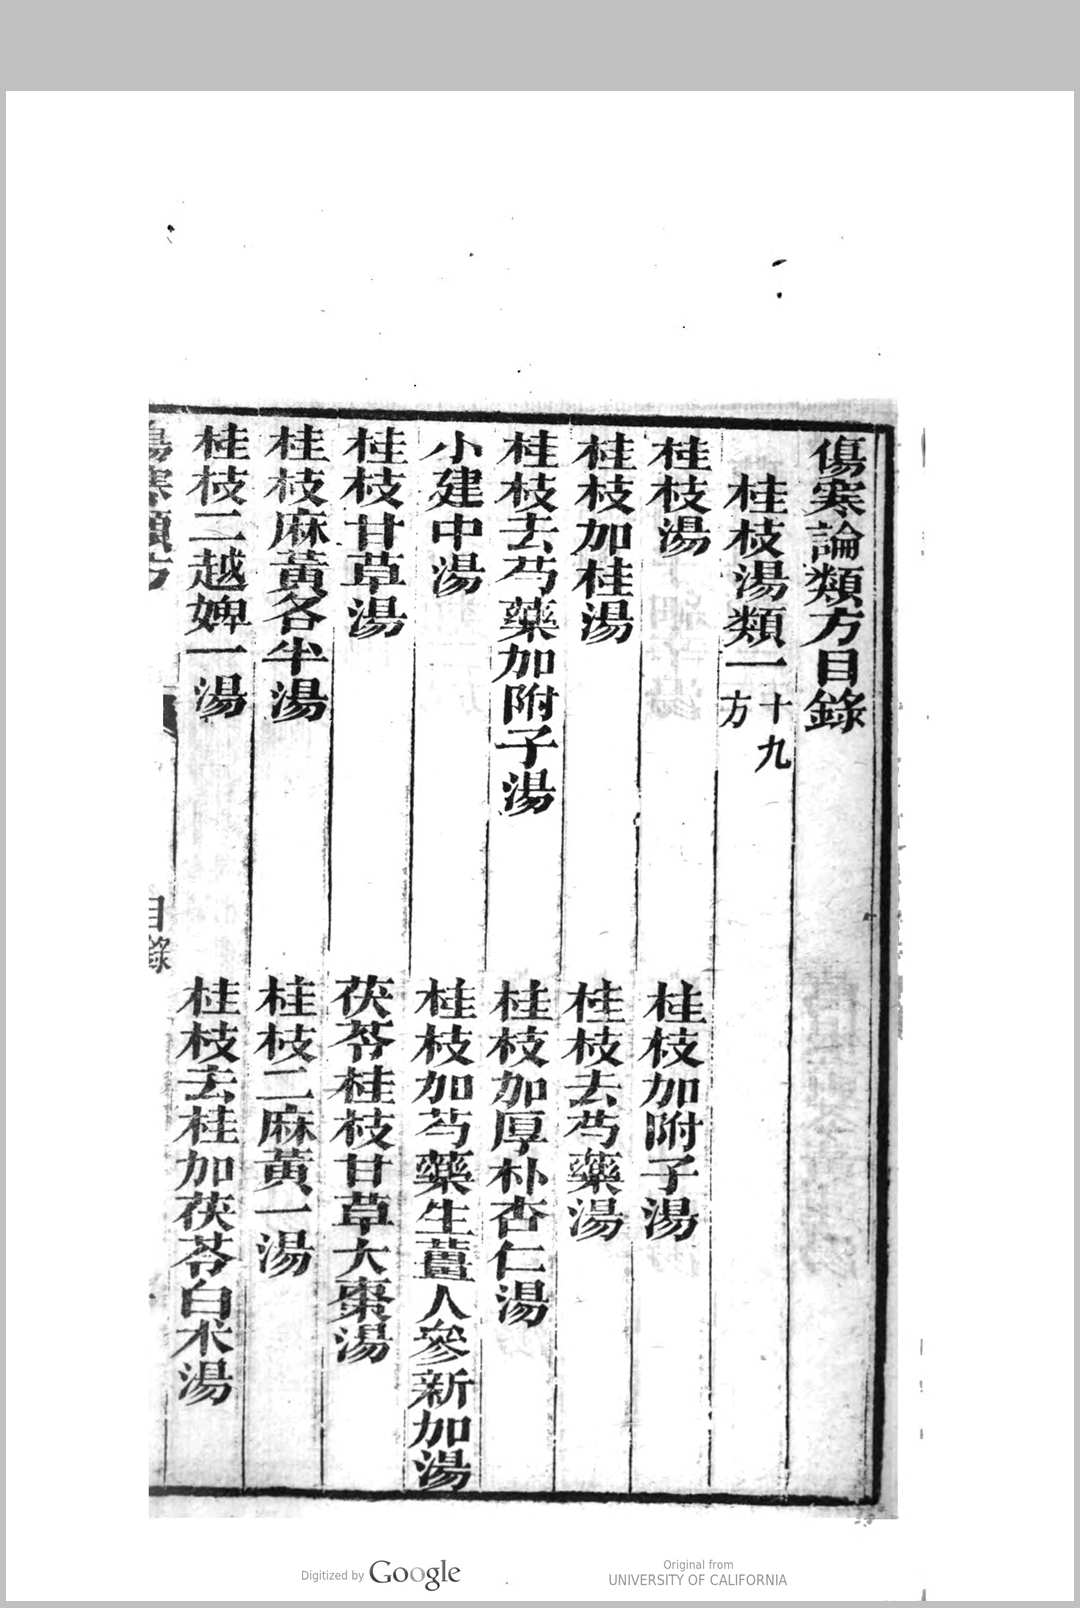 傷寒論類方目錄
桂枝湯類一 十九方
桂枝湯 桂枝加附子湯
桂枝加桂湯 桂枝去芍藥湯
桂枝去芍藥加附子湯 桂枝加厚朴杏仁湯
小建中湯 桂枝加芍藥生薑人參新加湯
桂枝甘草湯 茯苓桂枝甘草大棗湯
桂枝麻黃各半湯 桂枝二麻黃一湯
桂枝二越婢一湯 桂枝去桂加茯苓白朮湯
傷寒類方 目錄
Digitized by Google
Original from
UNIVERSITY OF CALIFORNIA